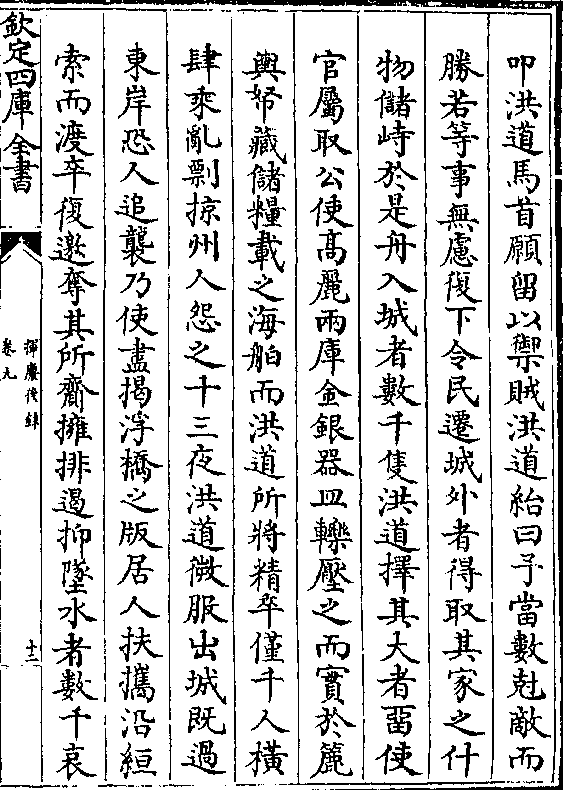 叩洪道馬首願留以禦賊洪道紿曰予當數尅敵而
勝若等事無慮復下令民遷城外者得取其家之什
物儲峙於是舟入城者數千隻洪道擇其大者留使
官屬取公使髙麗兩庫金銀器皿轢壓之而實於簏
輿帑藏儲糧載之海舶而洪道所將精卒僅千人橫
肆乘亂剽掠州人怨之十三夜洪道微服出城既過
東岸恐人追襲乃使盡揭浮橋之版居人扶攜沿絙
索而渡卒復邀奪其所齎擁排遏抑墜水者數千哀
欽定四庫全書
揮麈後錄
卷九
十三